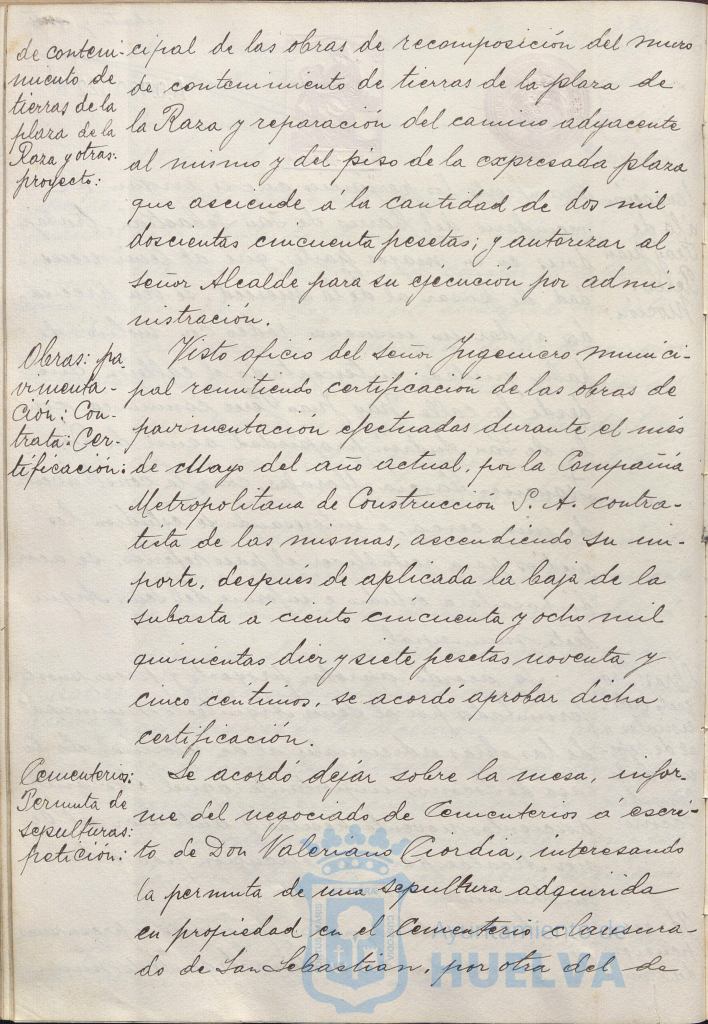 de conteni-
miento de
tierras de la
plaza de la
Raza y otras:
proyecto:
cipal de las obras de recomposición del muro
de contenimiento de tierras de la plaza de
la Raza y reparación del camino adyacente
al mismo y del piso de la expresada plaza
que asciende á la cantidad de dos mil
doscientas cincuenta pesetas; y autorizar al
señor Alcalde para su ejecución por admi-
nistración.
Obras: pa-
vimenta-
ción: Con-
trata: Cer-
tificación:
Visto oficio del señor Ingeniero munici-
pal remitiendo certificación de las obras de
pavimentación efectuadas durante el més
de Mayo del año actual, por la Compañia
Metropolitana de Construcción S. A. contra-
tista de las mismas, ascendiendo su im-
porte, después de aplicada la baja de la
subasta á ciento cincuenta y ocho mil
quinientas diez y siete pesetas noventa y
cinco centimos, se acordó aprobar dicha
certificación.
Cementerios:
Permuta de
sepulturas:
petición:
Se acordó dejar sobre la mesa, infor-
me del negociado de Cementerios á escri-
to de Don Valeriano Ciordia, interesando
la permuta de una sepultura adquirida
en propiedad en el Cementerio clausura-
do de San Sebastian, por otra del de
Ayuntamiento de
HUELVA